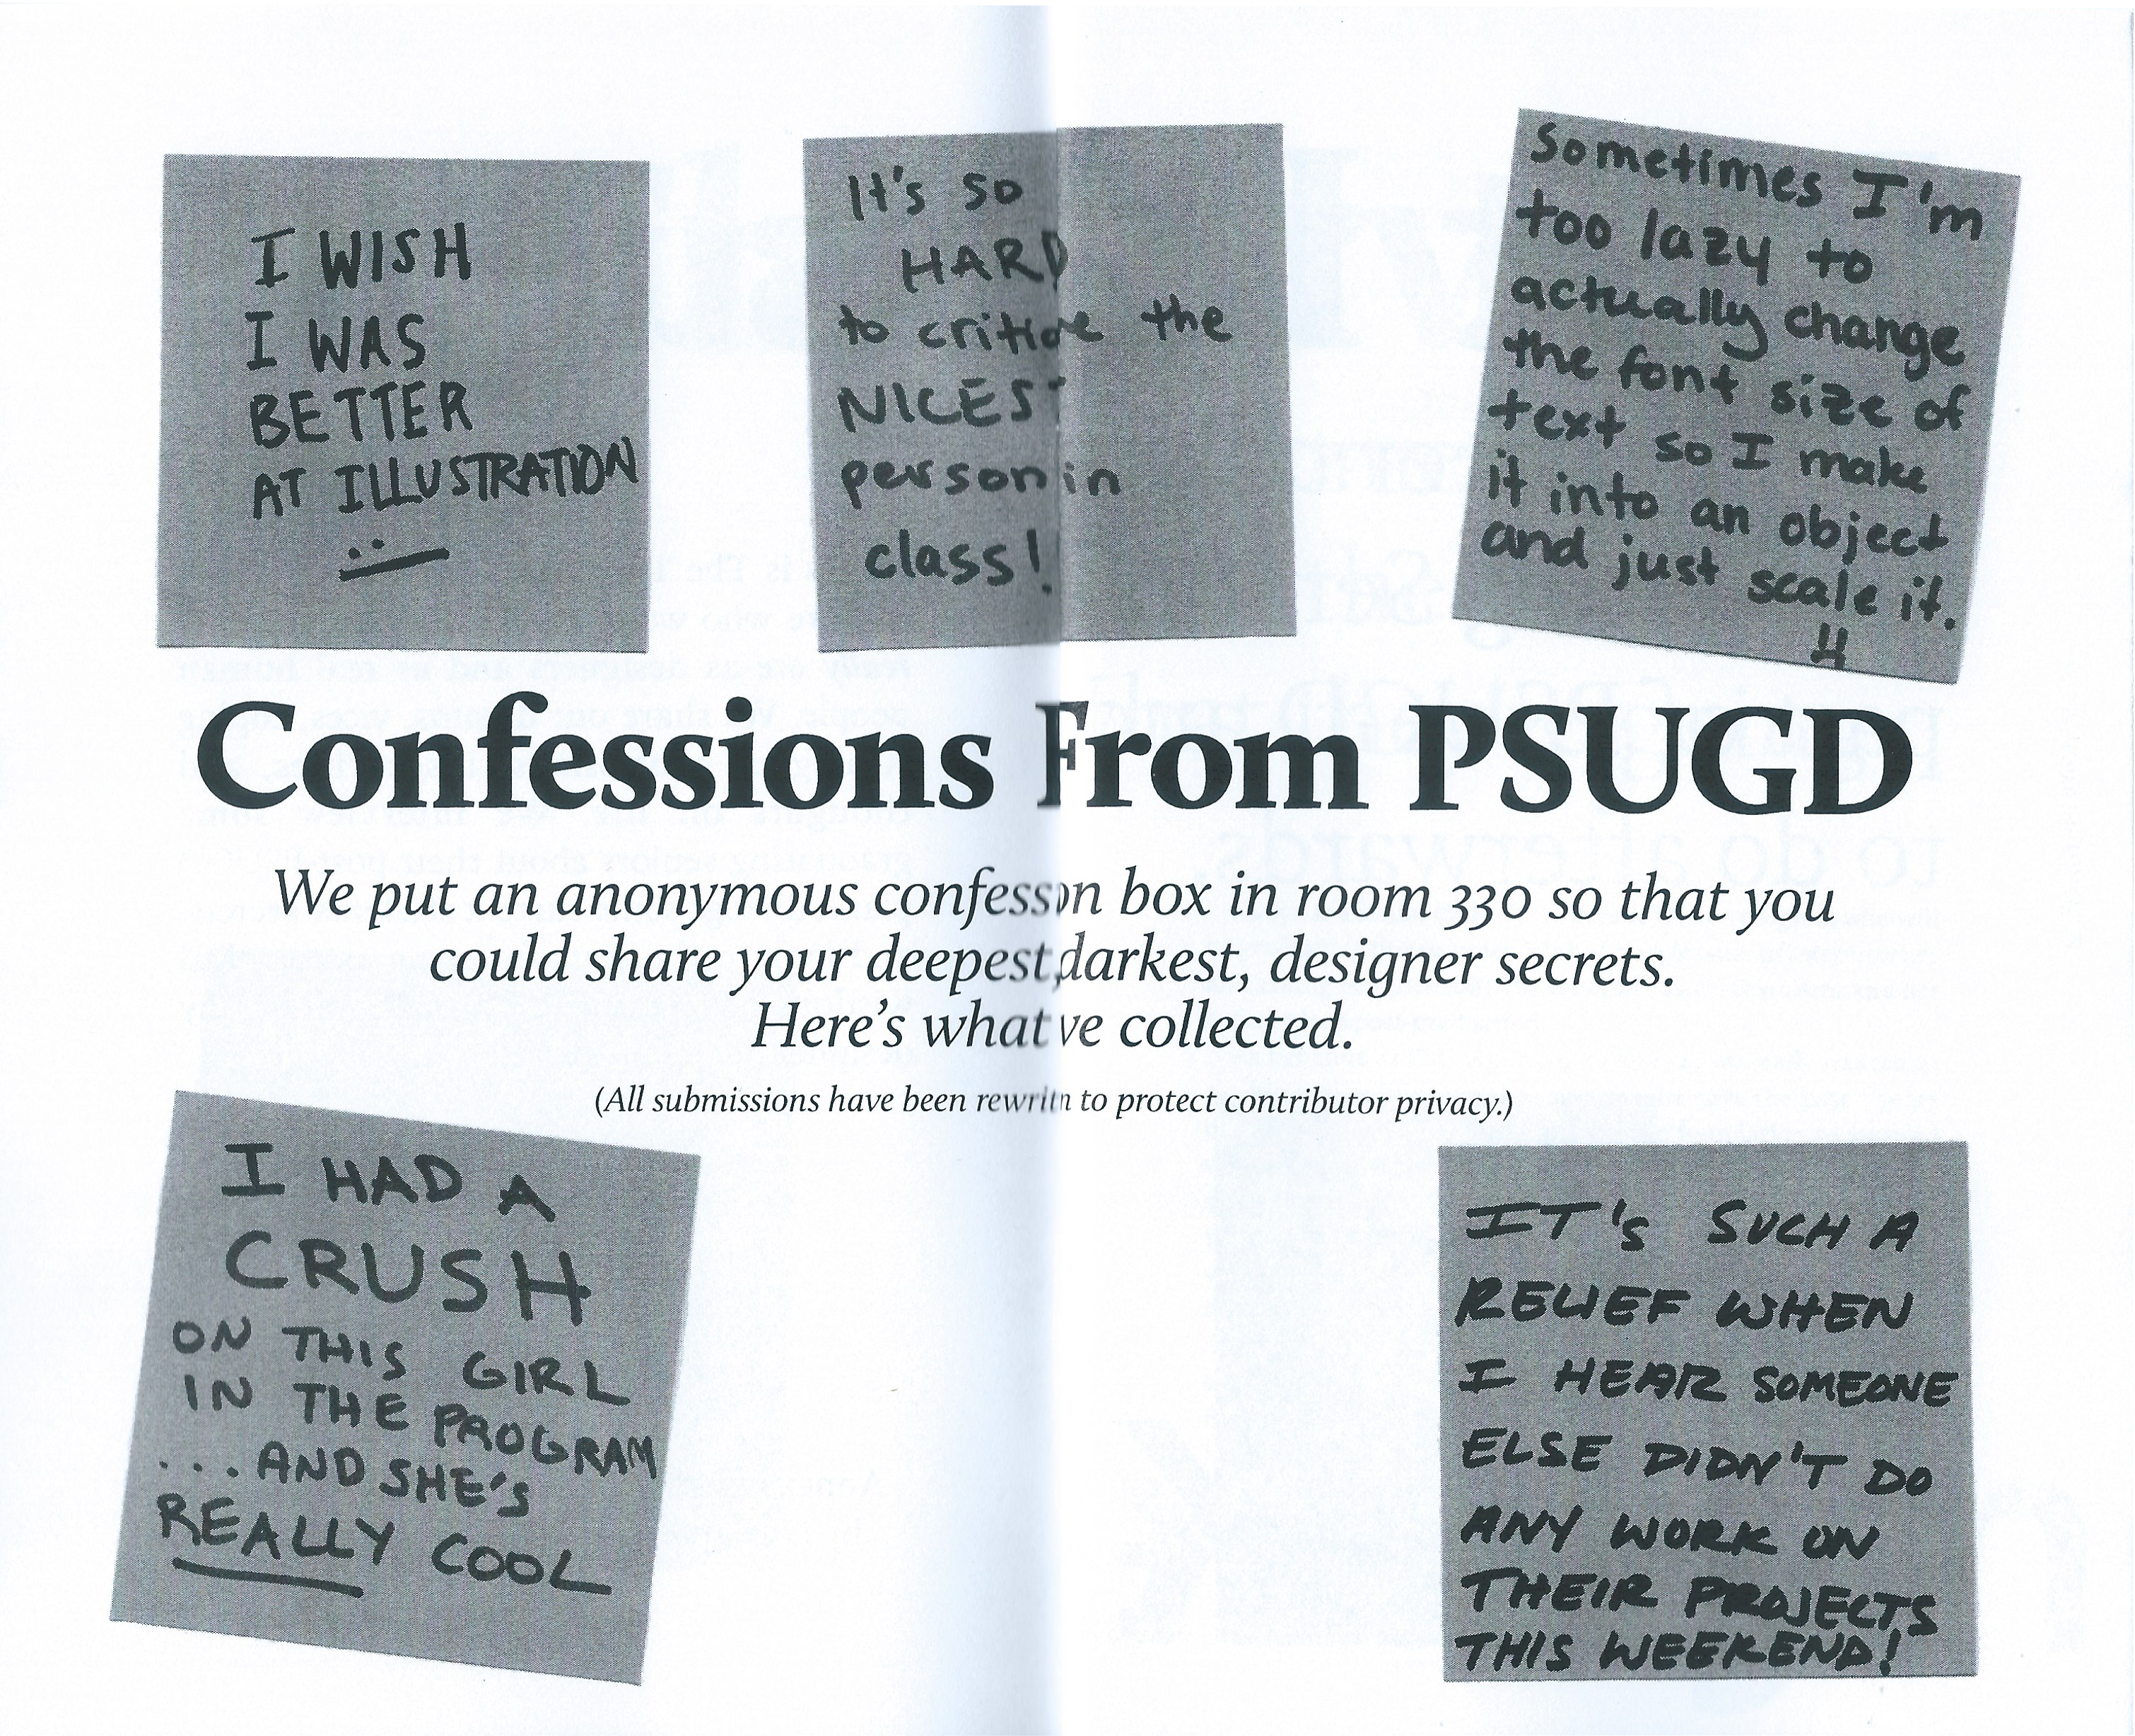 I WISH
I WAS
BETTER
AT ILLUSTRATION
It's so
HARD
to critique the
NICEST
person in
class!
Sometimes I'm
too lazy to
actually change
the font size of
text so I make
it into an object
and just scale it.
Confessions From PSUGD
We put an anonymous confession box in room 330 so that you
could share your deepest, darkest, designer secrets.
Here's what we collected.
(All submissions have been rewritten to protect contributor privacy.)
I HAD A
CRUSH
ON THIS GIRL
IN THE PROGRAM
...AND SHE'S
REALLY COOL
IT'S SUCH A
RELIEF WHEN
I HEAR SOMEONE
ELSE DIDN'T DO
ANY WORK ON
THEIR PROJECTS
THIS WEEKEND!